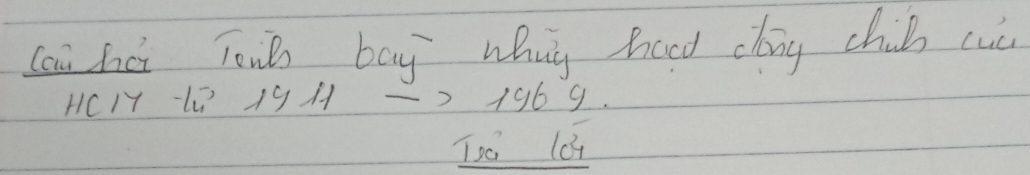 Câu hỏi Trình bày những hoạt động chính của
HCM từ 1911 -> 1969.
Trả lời